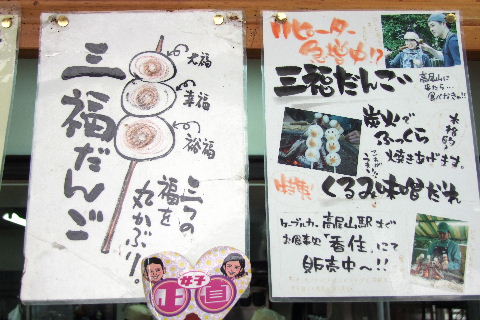 三福だんご
大福
幸福
裕福
三つの
福を
丸かぶり!
女子
正直
リピーター
急増中!?
三福だんご
高尾山に
来たら…
食べなきゃ!!
炭火で
ふっくら
焼きあげます。
本格的
特製!
くるみ味噌だれ
ケーブルカー 高尾山駅 まで
お食事処「香住」にて
販売中〜!!